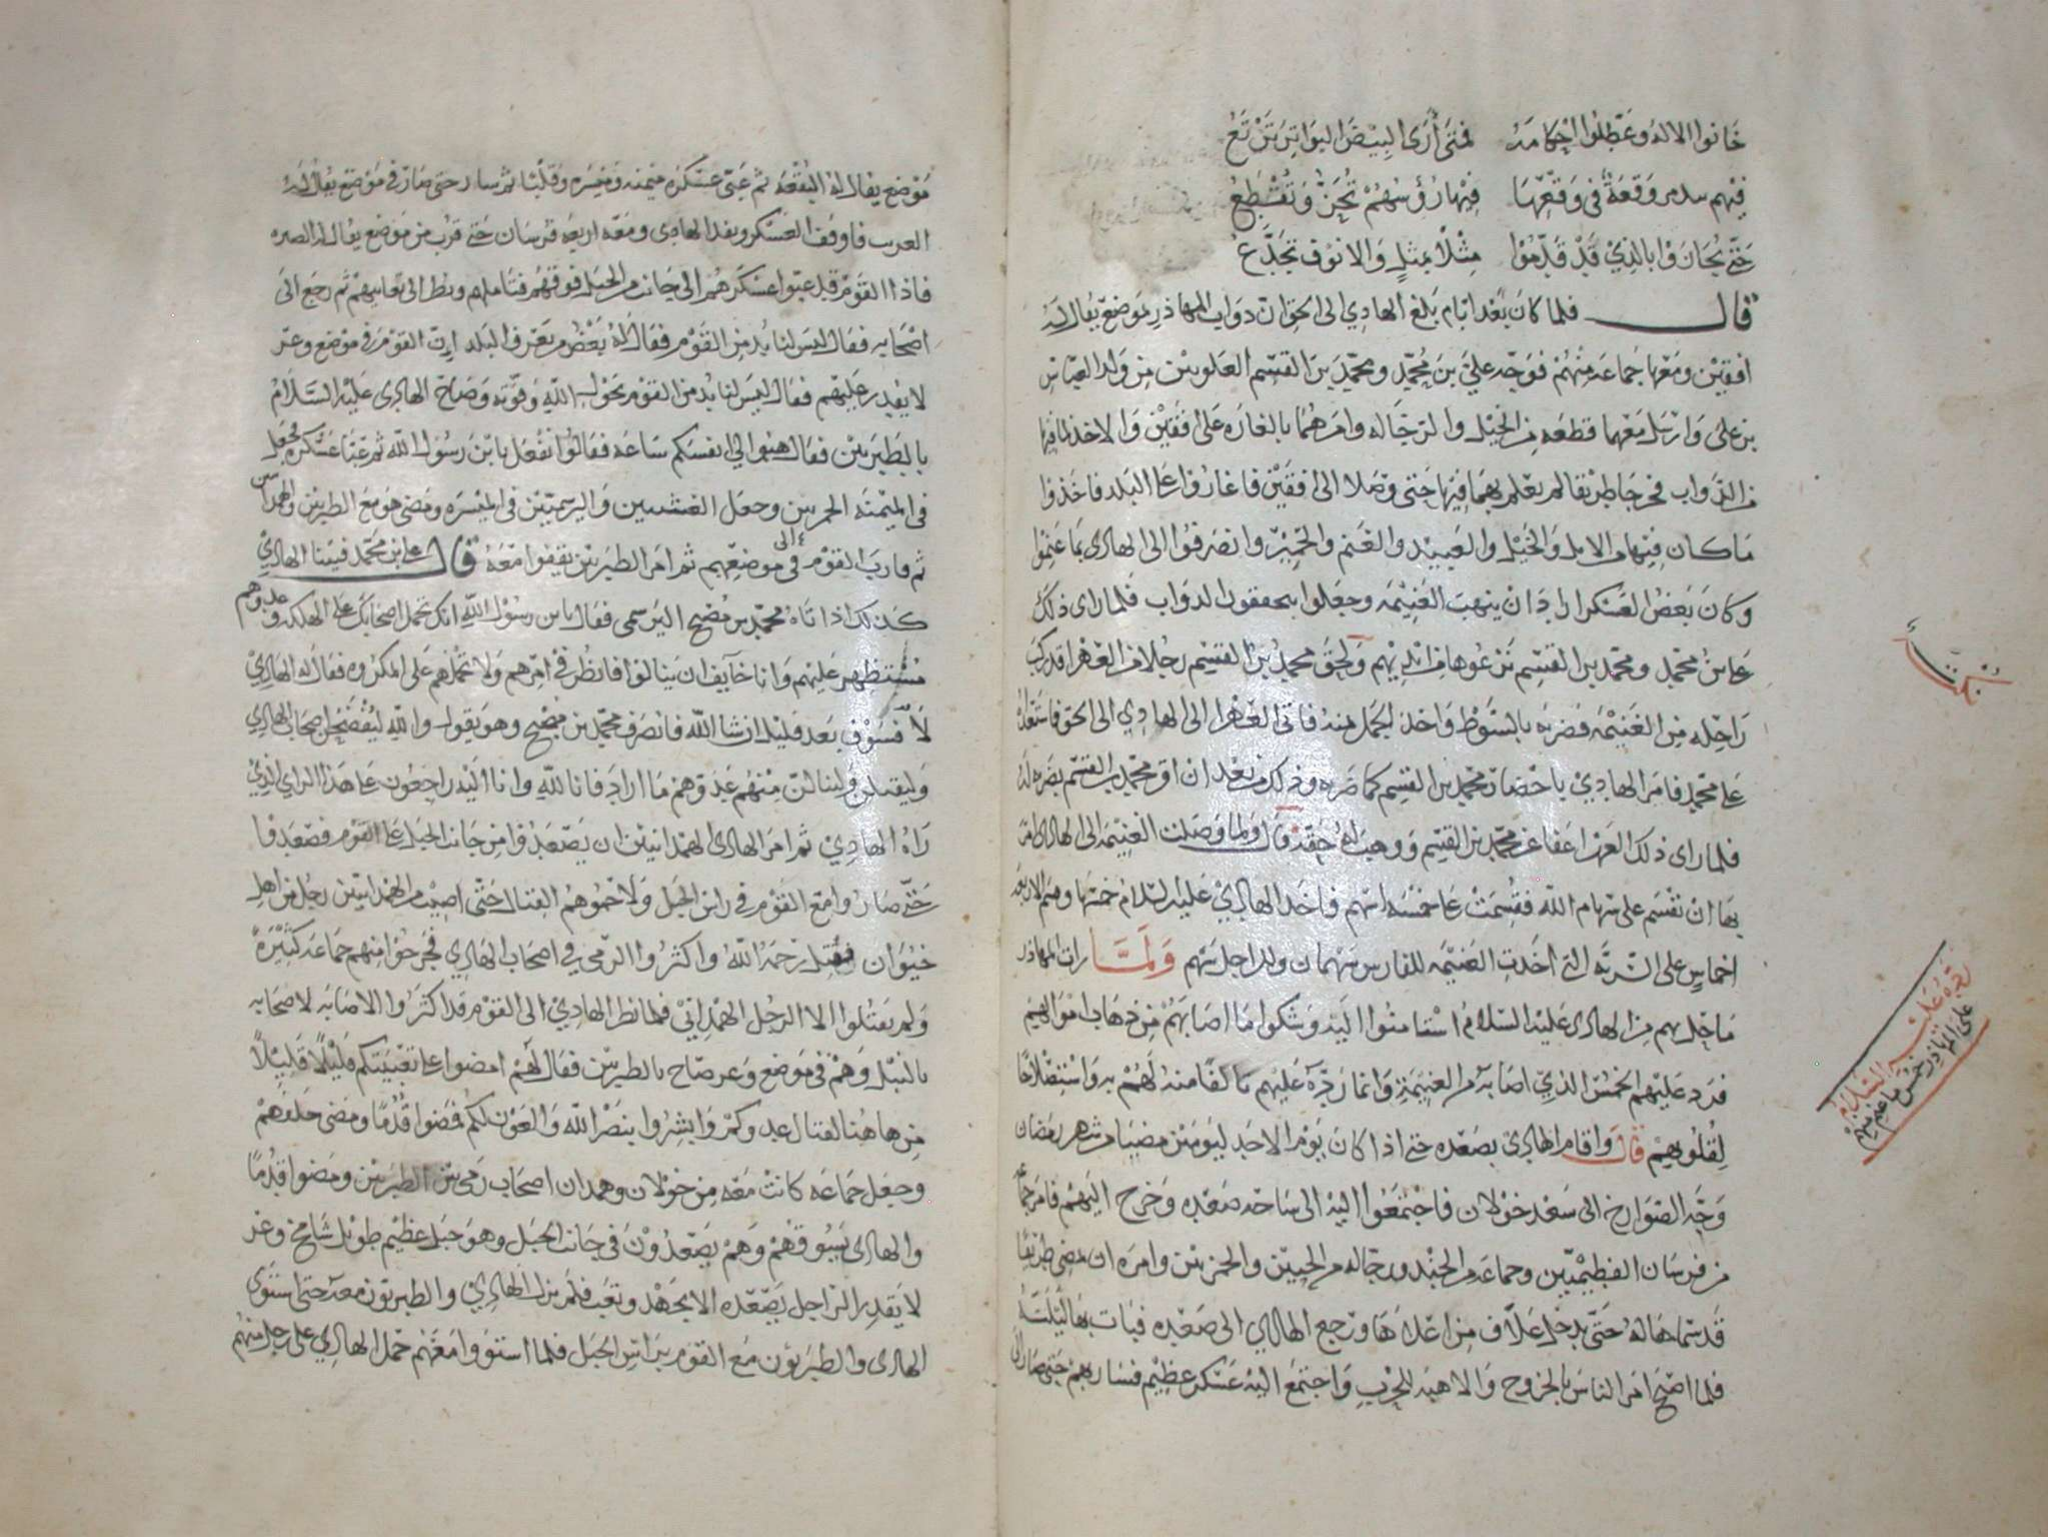 خانوا الاله وعطلوا احكامه فمتى أرى البيض البواتر ترتع
فيهم وقعة في وقعها فيها رؤسهم تحز وتقطع
حتى يجازوا بالذي قد قدموا مثلا بمثل والانوف تجدع
قال فلما كان بعد ايام بلغ الهادي الى الحق ان دواب المهاذر بموضع يقال له
افقين ومعها جماعة منهم فوجه علي بن محمد ومحمد بن القسم العلويين من ولد العباس
بن علي وارسل معهما قطعه من الخيل والرجاله وامرهما بالغاره على افقين والاخذ لما فيها
من الدواب فخرجا طريقا لم يعلم بهما فيها حتى وصلا الى افقين فاغاروا على البلد فاخذوا
ما كان فيها من الابل والخيل والعبيد والغنم والحمير وانصرفوا الى الهادي بما غنموا
وكان بعض العسكر اراد ان ينهب الغنيمه وجعلوا الدواب فلما راى ذلك
علي بن محمد ومحمد بن القسم نزعوها من ايديهم ولحق محمد بن القسم رجلا من قد ركب
راحله من الغنيمه فضربه بالسوط واخذ الجمل منه فاتى الى الهادي الى الحق فاستعداه
على محمد فامر الهادي باحضار محمد بن القسم كما ضربه وذلك من بعد ان اقر محمد بن القسم بضربه له
فلما راى ذلك عفا عن محمد بن القسم ووهب له حقه قال ولما وصلت الغنيمه الى الهادي امر
بها ان تقسم على سهام الله فقسمت على خمسه اسهم فاخذ الهادي عليه السلام خمسها وقسم الاربعه
اخماس على السريه التي اخذت الغنيمه للفارس سهمان وللراجل سهم ولما رات المهاذر
ما حل بهم من الهادي عليه السلام استامنوا اليه وشكوا ما اصابهم من ذهاب اموالهم
فرد عليهم الخمس الذي اصابه من الغنيمة وانما رده عليهم تالفا منه لهم به واستصلاحا
لقلوبهم قال واقام الهادي بصعده حتى اذا كان يوم الاحد ليومين مضيا من شهر رمضان
وجه الصوارخ الى سعد خولان فاجتمعوا اليه الى ساحه صعده وخرج اليهم فامر جماعه
من فرسان الفطيميين وجماعه من الجند ورجاله من والحمزيين وامره ان يمضي طريقا
قد سماها له حتى يدخل علاف من اعلاها ورجع الهادي الى صعده فبات بها ليلته
فلما اصبح امر الناس بالخروج والاهبه للحرب واجتمع اليه عسكر عظيم فسار بهم حتى صار الى
نكت
رده عليه السلام
على المهاذر خمس ما غنم منهم
موضع يقال له البقعه ثم عبى عسكره ميمنه وميسره وقلبا ثم سار حتى صار في موضع يقال له
فاوقف العسكر ونفد الهادي ومعه اربعه فرسان حتى قرب من موضع يقال له
فاذا القوم قد عبوا عسكرهم الى جانب من الجبل فوقهم فتاملهم ونظر الى تعابيهم ثم رجع الى
اصحابه فقال ليس لنا بد من القوم فقال له بعض من يعرف البلد ان القوم في موضع وعر
لا يقدر عليهم فقال ليس لنا بد من القوم بحول الله وقوته وصاح الهادي عليه السلام
بالطبريين فقال هبوا لي انفسكم ساعه فقالوا نفعل يا ابن رسول الله ثم عبا عسكره فجعل
في الميمنه وجعل واليرسميين في الميسره ومضى هو مع الطبريين والهمدانيين
ثم قارب القوم الى موضعهم ثم امر الطبريين يقفوا معه قال علي بن محمد فبينا الهادي
كذلك اذ اتاه محمد بن مصبح اليرسمي فقال يا ابن رسول الله انك تحمل اصحابك على الهلكه وعدوهم
مستظهر عليهم وانا خايف ان ينالوا فانظر في امرهم ولا تحملهم على المكروه فقال له الهادي
لا فسوف بعد قليل ان شا الله فانصرف محمد بن مصبح وهو يقول والله ليفتضحن اصحاب الهادي
وليقتلن ولينالن منهم عدوهم ما اراد فانا لله وانا اليه راجعون على هذا الراي الذي
راه الهادي ثم امر الهادي الهمدانيين ان يصعدوا من جانب الجبل على القوم فصعدوا
حتى صاروا مع القوم في راس الجبل ولاحموهم القتال حتى اصيب من الهمدانيين رجل من اهل
خيوان فقتل رحمه الله واكثروا الرمي في اصحاب الهادي فجرحوا منهم جماعه كثيرة
ولم يقتلوا الا الرجل الهمداني فلما نظر الهادي الى القوم قد اكثروا الاصابه لاصحابه
بالنبل وهم في موضع وعر صاح بالطبريين فقال لهم امضوا على تعبيتكم قليلا قليلا
من هاهنا لقتال عدوكم وابشروا بنصر الله والعون لكم فمضوا قدما ومضى خلفهم
وجعل جماعه كانت معه من خولان وهمدان اصحاب رمي بين الطبريين ومضوا قدما
والهادي يسوقهم وهم يصعدون في جانب الجبل وهو جبل عظيم طويل شامخ وعر
لا يقدر الراجل يصعده الا بجهد وتعب فلم يزل الهادي والطبريون معه حتى استوى
الهادي والطبريون مع القوم براس الجبل فلما استووا معهم حمل الهادي على رجل منهم